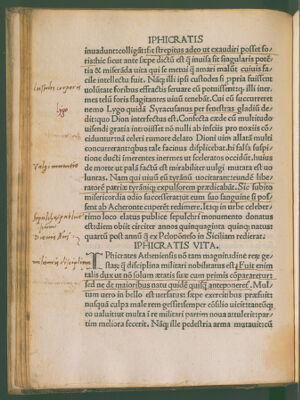 IPHICRATIS
inuadunt: colligāt: fit strepitus adeo ut exaudiri posset fo
ris: hic sicut ante sæpe dictū est q̄ inuisa sit singularis potē
tia & miserāda uita qui se metui q̄ amari malūt cuiuis fa
cile intellectu fuit. Nāq; illi ipsi custodes si
uoluntate foribus effractis seruare eū potuissent: q; illi iner
mes telū foris flagitantes uiuū tenebāt. Cui cū succurreret
nemo Lygo quidā Syracusanus per fenestras gladiū de-
dit quo Dion interfectus est. Confecta cæde cū multitudo
uisendi gratia introisset nō nulli ab insciis pro noxiis cō
ciduntur: nā celeri rumore delato Dioni uim allatā multi
concurrerant: quibus tale facinus displicebat. hi falsa suspi
tione ducti imerentes inermes ut sceleratos occidūt. huius
de morte ut palā factū est mirabiliter uulgi mutata est uo
luntas. Nam qui uiuū eū tyrānū uocitarant: eūdē libe-
ratorē patriæ tyrāniq; expulsorem prædicabāt. Sic subito
misericordia odio successerat: ut eum suo sanguine si posset
ab Acheronte cuperēt redimere. Itaq; in urbe celeber-
rimo loco elatus publice sepulchri monumento donatus
est: diem obiit circiter annos quinquaginta quinq; natus
quartū post annū q̄ ex Peloponeso in Siciliam redierat.
IPHICRATIS VITA.
Iphicrates Atheniensis nō tam magnitudine rerū ge-
staq; q̄ disciplina militari nobilitatus est. Fuit enim
talis dux ut nō solum ætatis suæ cum primis cōpararetur
Sed ne de maioribus natu quidē quisq; anteponeret. Mul-
tum uero in bello est uersatus: sæpe exercitibus præfuit
nusquā culpa male rem gessit: semper cōsilio uicit: tantūq;
eo ualuit ut multa ī re militari partim noua attulerit: par-
tim meliora fecerit. Nāq; ille pedestria arma mutauit: cū
lygo